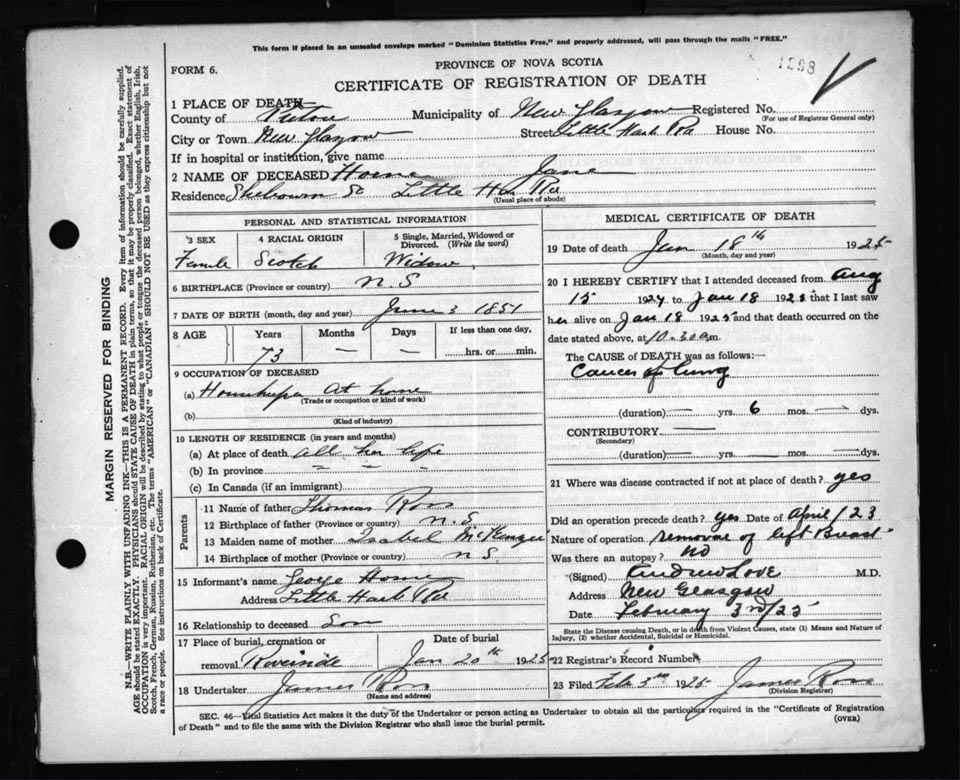 This form if placed in an unsealed envelope marked "Dominion Statistics Free," and properly addressed, will pass through the mails "FREE."
FORM 6.
PROVINCE OF NOVA SCOTIA
1298
CERTIFICATE OF REGISTRATION OF DEATH
1 PLACE OF DEATH
County of Pictou Municipality of New Glasgow Registered No.
(For use of Registrar General only)
City or Town New Glasgow Street Little Harb Rd House No.
If in hospital or institution, give name
2 NAME OF DECEASED Horne Jane
Residence St Little Har Rd
(Usual place of abode)
PERSONAL AND STATISTICAL INFORMATION
3 SEX 4 RACIAL ORIGIN 5 Single, Married, Widowed or Divorced. (Write the word)
Female Scotch Widow
6 BIRTHPLACE (Province or country) N.S
7 DATE OF BIRTH (month, day and year) June 3 1851
8 AGE Years Months Days If less than one day,
73 — — hrs. or min.
9 OCCUPATION OF DECEASED
(a) Housekeeper At home
(Trade or occupation or kind of work)
(b)
(Kind of industry)
10 LENGTH OF RESIDENCE (in years and months)
(a) At place of death all her life
(b) In province " " "
(c) In Canada (if an immigrant)
Parents
11 Name of father Thomas Ross
12 Birthplace of father (Province or country) N.S
13 Maiden name of mother Isabel McKenzie
14 Birthplace of mother (Province or country) N S
15 Informant's name George Horne
Address Little Harb Rd
16 Relationship to deceased Son
17 Place of burial, cremation or removal Riverside
Date of burial
Jan 20th 1925
18 Undertaker James Ross
(Name and address)
MEDICAL CERTIFICATE OF DEATH
19 Date of death Jan 18th 1925
(Month, day and year)
20 I HEREBY CERTIFY that I attended deceased from Aug
15 1924 to Jan 18 1925 that I last saw
her alive on Jan 18 1925 and that death occurred on the
date stated above, at 10.30 a.m.
The CAUSE of DEATH was as follows:—
Cancer of lung
(duration) — yrs. 6 mos. — dys.
CONTRIBUTORY —
(Secondary)
(duration) yrs. mos. dys.
21 Where was disease contracted if not at place of death? yes
Did an operation precede death? yes Date of April/23
Nature of operation removal of left Breast
Was there an autopsy? no
(Signed) Andrew Love M.D.
Address New Glasgow
Date February 3rd/25
State the Disease causing Death, or in death from Violent Causes, state (1) Means and Nature of
Injury, (2) whether Accidental, Suicidal or Homicidal.
22 Registrar's Record Number
23 Filed Feb 3rd 1925 James Ross
(Division Registrar)
SEC. 46—Vital Statistics Act makes it the duty of the Undertaker or person acting as Undertaker to obtain all the particulars required in the "Certificate of Registration
of Death" and to file the same with the Division Registrar who shall issue the burial permit.
(OVER)
MARGIN RESERVED FOR BINDING
N.B.—WRITE PLAINLY WITH UNFADING INK—THIS IS A PERMANENT RECORD. Every item of information should be carefully supplied.
AGE should be stated EXACTLY. PHYSICIANS should STATE CAUSE OF DEATH in plain terms, so that it may be properly classified. Exact statement of
OCCUPATION is very important. RACIAL ORIGIN will be described by stating to what people or tongue the deceased person belonged, whether English, Irish,
Scotch, French, German, Russian, Ruthenian, etc. The terms "AMERICAN" or "CANADIAN" SHOULD NOT BE USED as they express citizenship but not
a race or people. See instructions on back of Certificate.